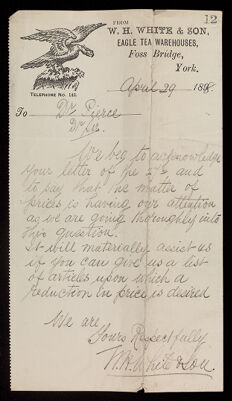 12
FROM
W. H. WHITE & SON,
EAGLE TEA WAREHOUSES,
Foss Bridge,
York.
TELEPHONE No. 143.
April 29 189
To Dr Pierce
Dr Sir
We beg to acknowledge
your letter of the and
to say that the matter of
prices is having our attention
as we are going thoroughly into
this question.
It will materially assist us
if you can give us a list
of articles upon which a
reduction in price is desired
We are
Yours Respectfully
W. H. White & Son